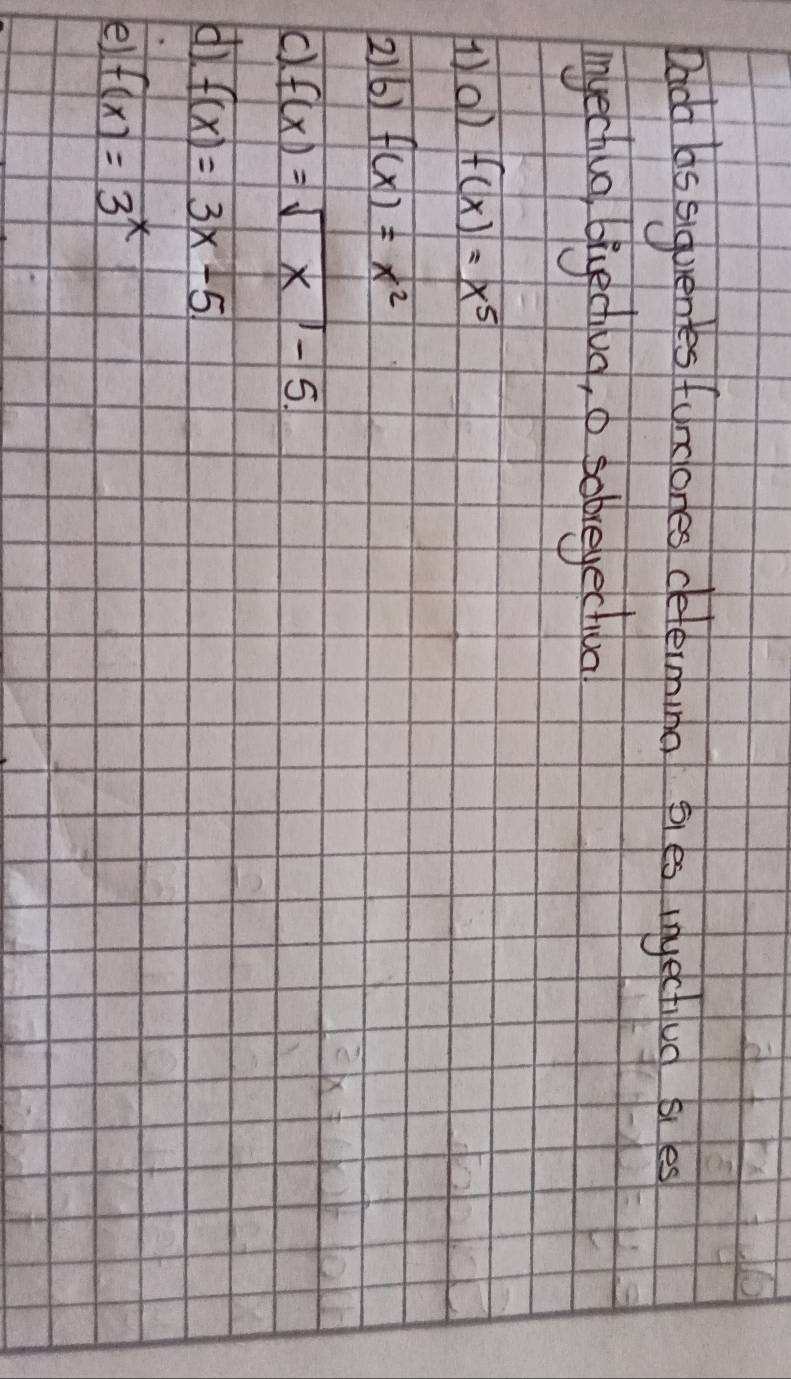 Dada las siguientes funciones determina si es inyectiva si es
inyectiva, biyectiva, o sobreyectiva.
1) a) f(x) = x⁵
2) b) f(x) = x²
c) f(x) = √x - 5.
d). f(x) = 3x - 5.
e) f(x) = 3ˣ